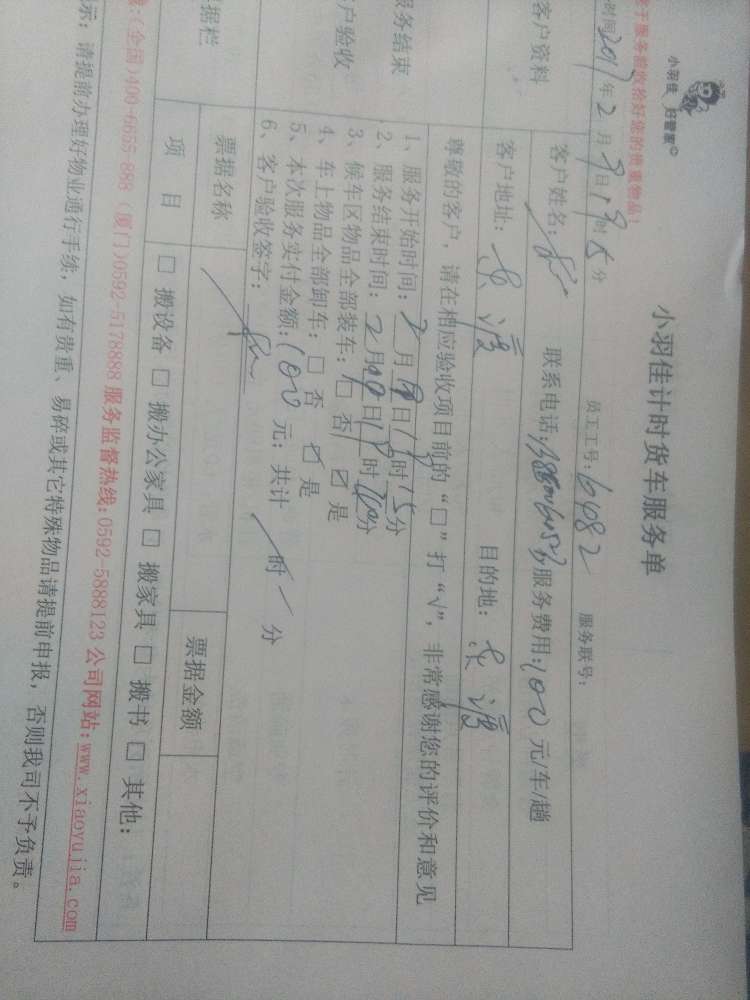 小羽佳 好管家©
小羽佳计时货车服务单
于服务前收拾好您的贵重物品!
时间2017年2月9日 时 分 员工工号:6482 服务联号:
客户资料
客户姓名: 联系电话: 服务费用:100元/车/趟
客户地址: 东渡 目的地: 东渡
服务结束
客户验收
尊敬的客户,请在相应验收项目前的“□”打“√”,非常感谢您的评价和意见
1、服务开始时间:2月9日 时15分
2、服务结束时间:2月 日 时 分
3、候车区物品全部装车:□ 否 ☑ 是
4、车上物品全部卸车:□ 否 ☑ 是
5、本次服务实付金额:100 元;共计 / 时 / 分
6、客户验收签字:
据栏
票据名称 票据金额
项 目 □ 搬设备 □ 搬办公家具 □ 搬家具 □ 搬书 □ 其他:
:(全国)400-6655-888 (厦门)0592-5178888 服务监督热线:0592-5888123 公司网站:www.xiaoyujia.com
示:请提前办理好物业通行手续,如有贵重、易碎或其它特殊物品请提前申报,否则我司不予负责。